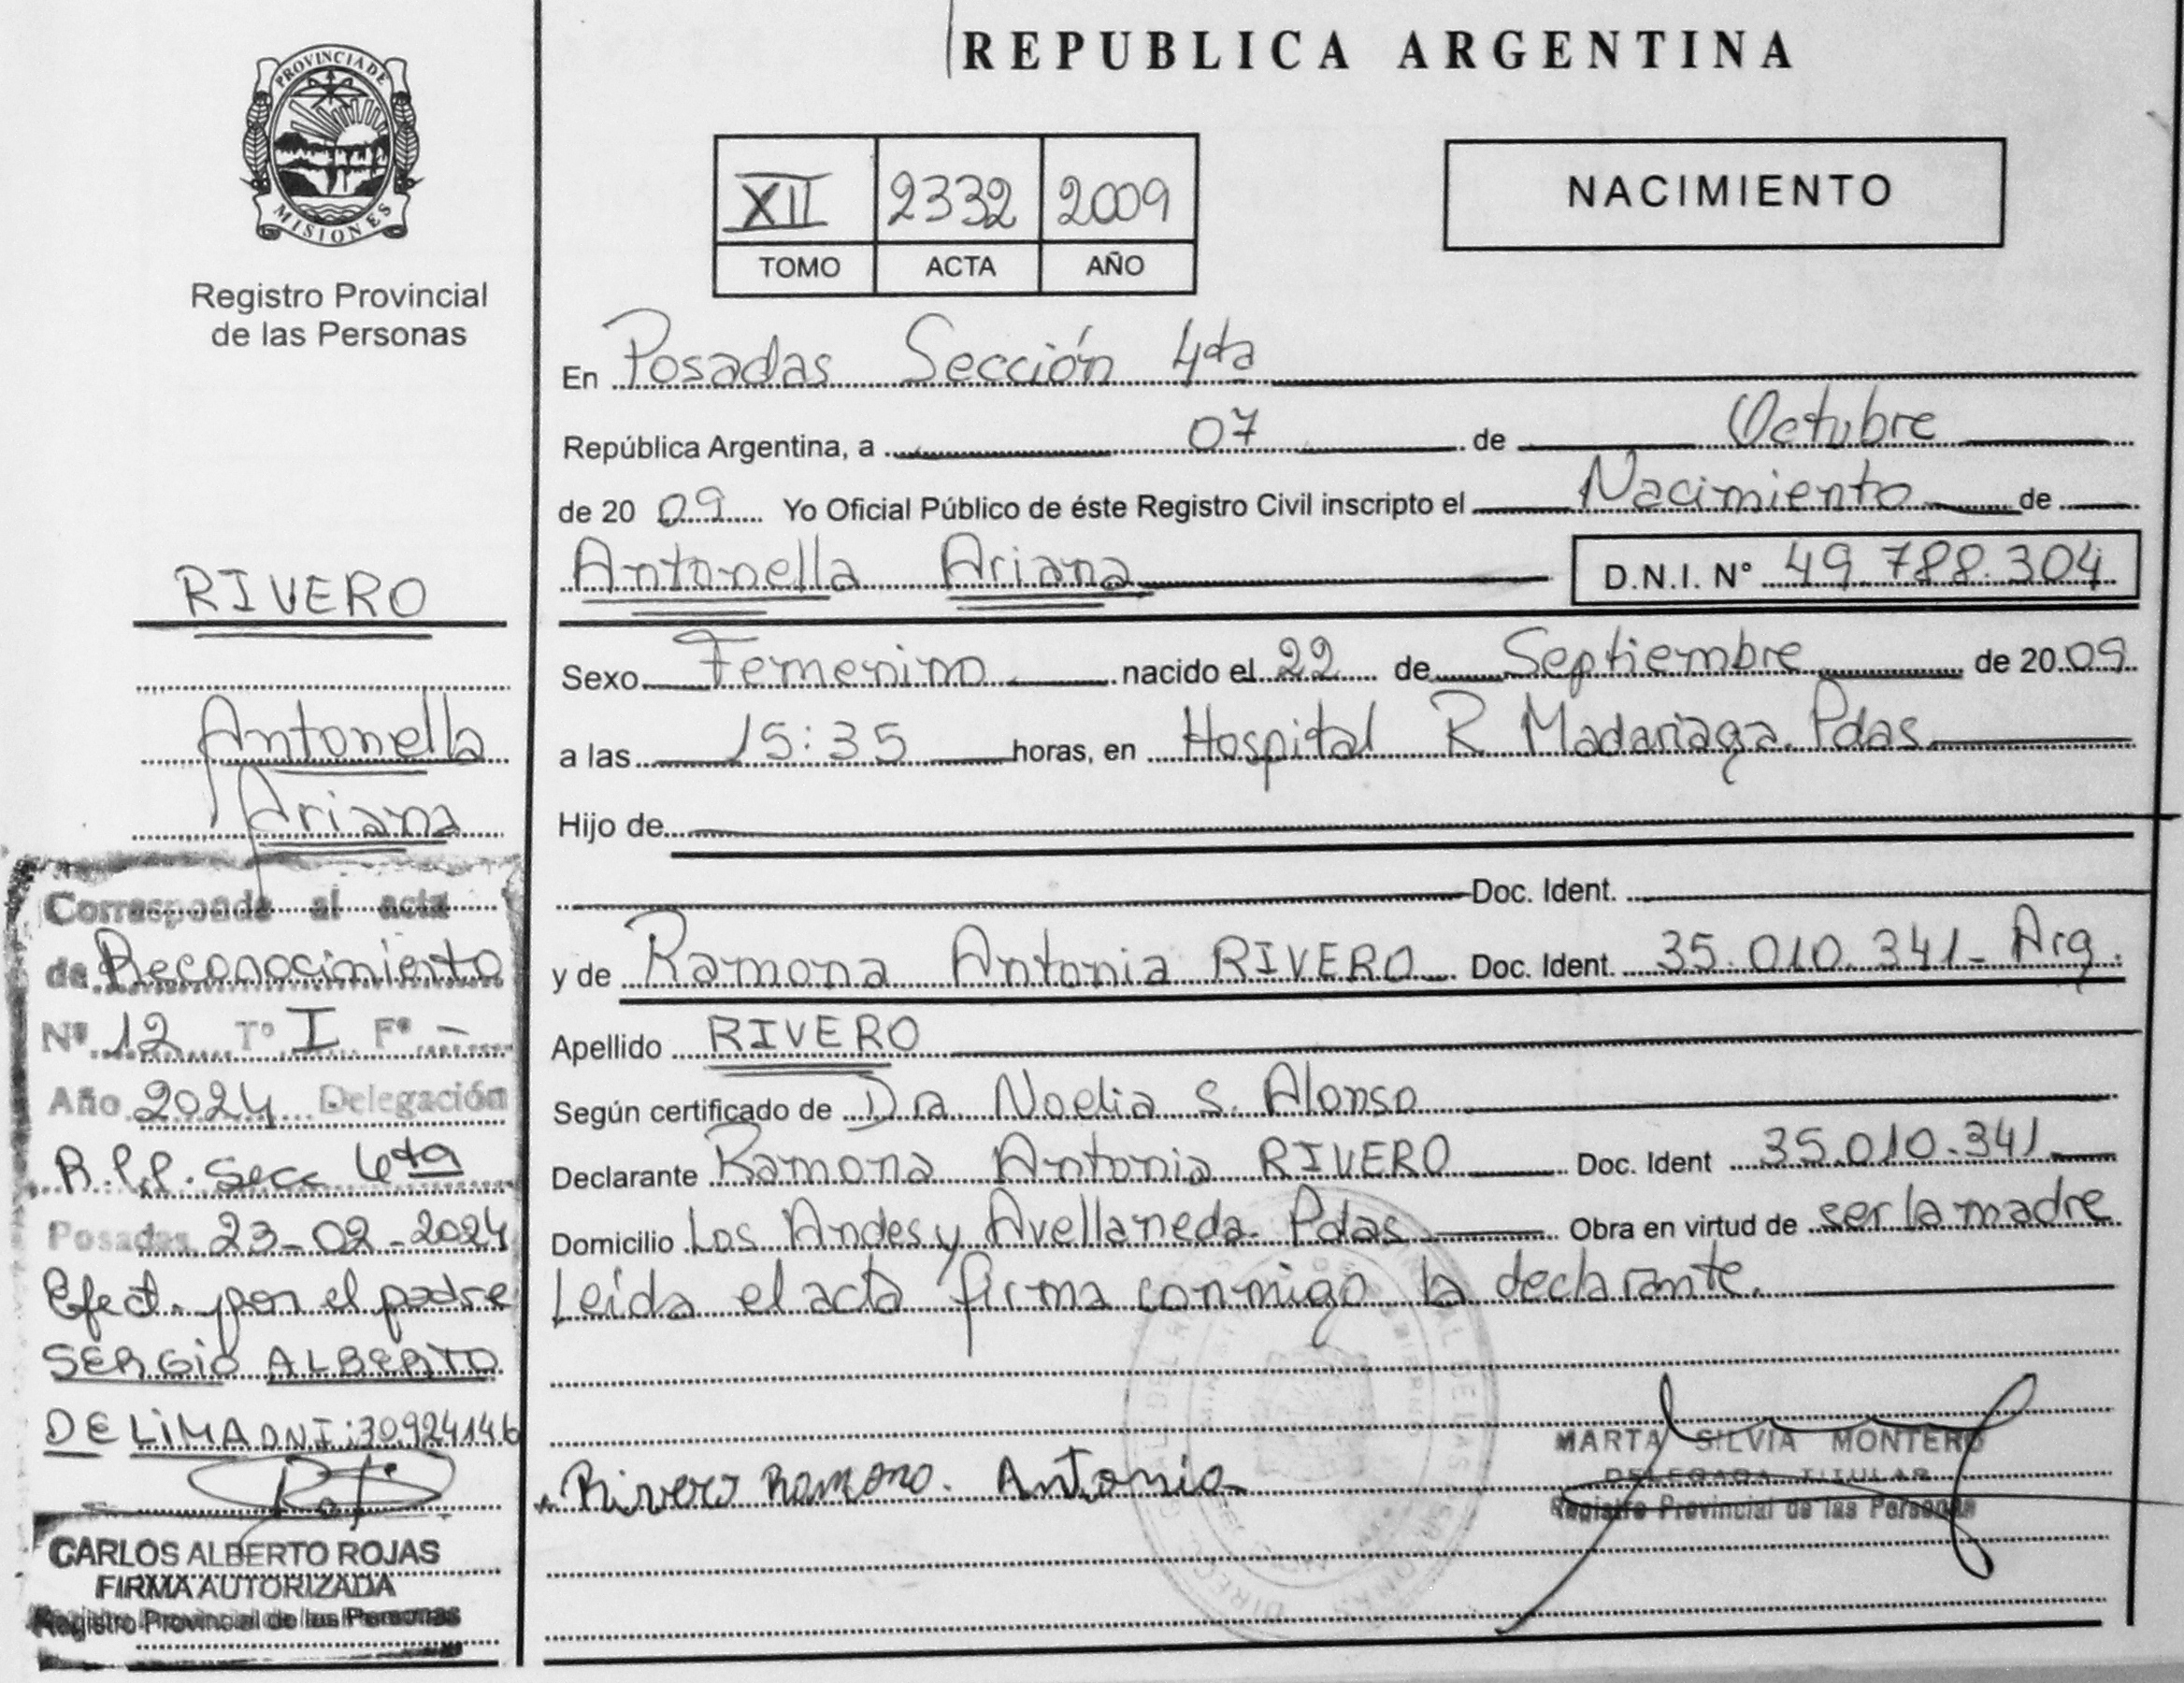 REPUBLICA ARGENTINA
PROVINCIA DE MISIONES
Registro Provincial
de las Personas
XII 2332 2009
TOMO ACTA AÑO
NACIMIENTO
En Posadas Sección 4ta
República Argentina, a 07 de Octubre
de 2009 Yo Oficial Público de éste Registro Civil inscripto el Nacimiento de
Antonella Ariana D.N.I. Nº 49.788.304
Sexo Femenino nacido el 22 de Septiembre de 2009
a las 15:35 horas, en Hospital R. Madariaga. Pdas
Hijo de
Doc. Ident.
y de Ramona Antonia RIVERO Doc. Ident. 35.010.341- Arg.
Apellido RIVERO
Según certificado de Dra Noelia S. Alonso
Declarante Ramona Antonia RIVERO Doc. Ident 35.010.341
Domicilio Los Andes y Avellaneda. Pdas Obra en virtud de ser la madre
Leída el acta firma conmigo la declarante.
Rivero Ramona. Antonia
MARTA SILVIA MONTERO
DELEGADA TITULAR
Registro Provincial de las Personas
RIVERO
Antonella
Ariana
Corresponde al acta
de Reconocimiento
Nº 12 Tº I Fº -
Año 2024 Delegación
R.P.P. Secc 4ta
Posadas 23-02-2024
Efect. por el padre
SERGIO ALBERTO
DE LIMA DNI:30924146
CARLOS ALBERTO ROJAS
FIRMA AUTORIZADA
Registro Provincial de las Personas